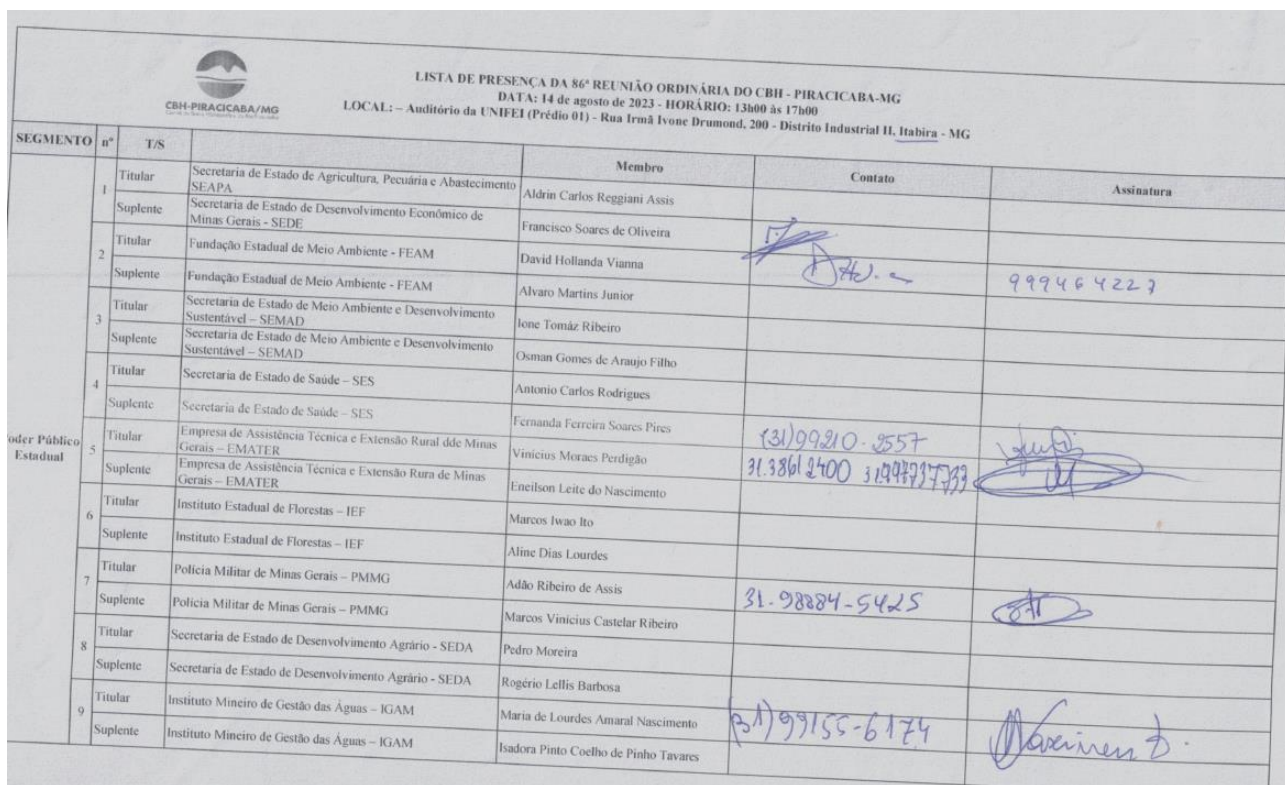 CBH-PIRACICABA/MG
LISTA DE PRESENÇA DA 86ª REUNIÃO ORDINÁRIA DO CBH - PIRACICABA-MG
DATA: 14 de agosto de 2023 - HORÁRIO: 13h00 às 17h00
LOCAL: – Auditório da UNIFEI (Prédio 01) - Rua Irmã Ivone Drumond, 200 - Distrito Industrial II, Itabira - MG
SEGMENTO nº T/S Membro Contato Assinatura
oder Público
Estadual
1 Titular Secretaria de Estado de Agricultura, Pecuária e Abastecimento
SEAPA Aldrin Carlos Reggiani Assis
Suplente Secretaria de Estado de Desenvolvimento Econômico de
Minas Gerais - SEDE Francisco Soares de Oliveira
2 Titular Fundação Estadual de Meio Ambiente - FEAM David Hollanda Vianna
Suplente Fundação Estadual de Meio Ambiente - FEAM Alvaro Martins Junior 999464227
3 Titular Secretaria de Estado de Meio Ambiente e Desenvolvimento
Sustentável – SEMAD Ione Tomáz Ribeiro
Suplente Secretaria de Estado de Meio Ambiente e Desenvolvimento
Sustentável – SEMAD Osman Gomes de Araujo Filho
4 Titular Secretaria de Estado de Saúde – SES Antonio Carlos Rodrigues
Suplente Secretaria de Estado de Saúde – SES Fernanda Ferreira Soares Pires
5 Titular Empresa de Assistência Técnica e Extensão Rural dde Minas
Gerais – EMATER Vinicius Moraes Perdigão (31)99210-2557
Suplente Empresa de Assistência Técnica e Extensão Rura de Minas
Gerais – EMATER Eneilson Leite do Nascimento 31.38612400 31.997737733
6 Titular Instituto Estadual de Florestas – IEF Marcos Iwao Ito
Suplente Instituto Estadual de Florestas – IEF Aline Dias Lourdes
7 Titular Polícia Militar de Minas Gerais – PMMG Adão Ribeiro de Assis
Suplente Polícia Militar de Minas Gerais – PMMG Marcos Vinicius Castelar Ribeiro 31.98884-5425
8 Titular Secretaria de Estado de Desenvolvimento Agrário - SEDA Pedro Moreira
Suplente Secretaria de Estado de Desenvolvimento Agrário - SEDA Rogério Lellis Barbosa
9 Titular Instituto Mineiro de Gestão das Águas – IGAM Maria de Lourdes Amaral Nascimento (31)99155-6174
Suplente Instituto Mineiro de Gestão das Águas – IGAM Isadora Pinto Coelho de Pinho Tavares